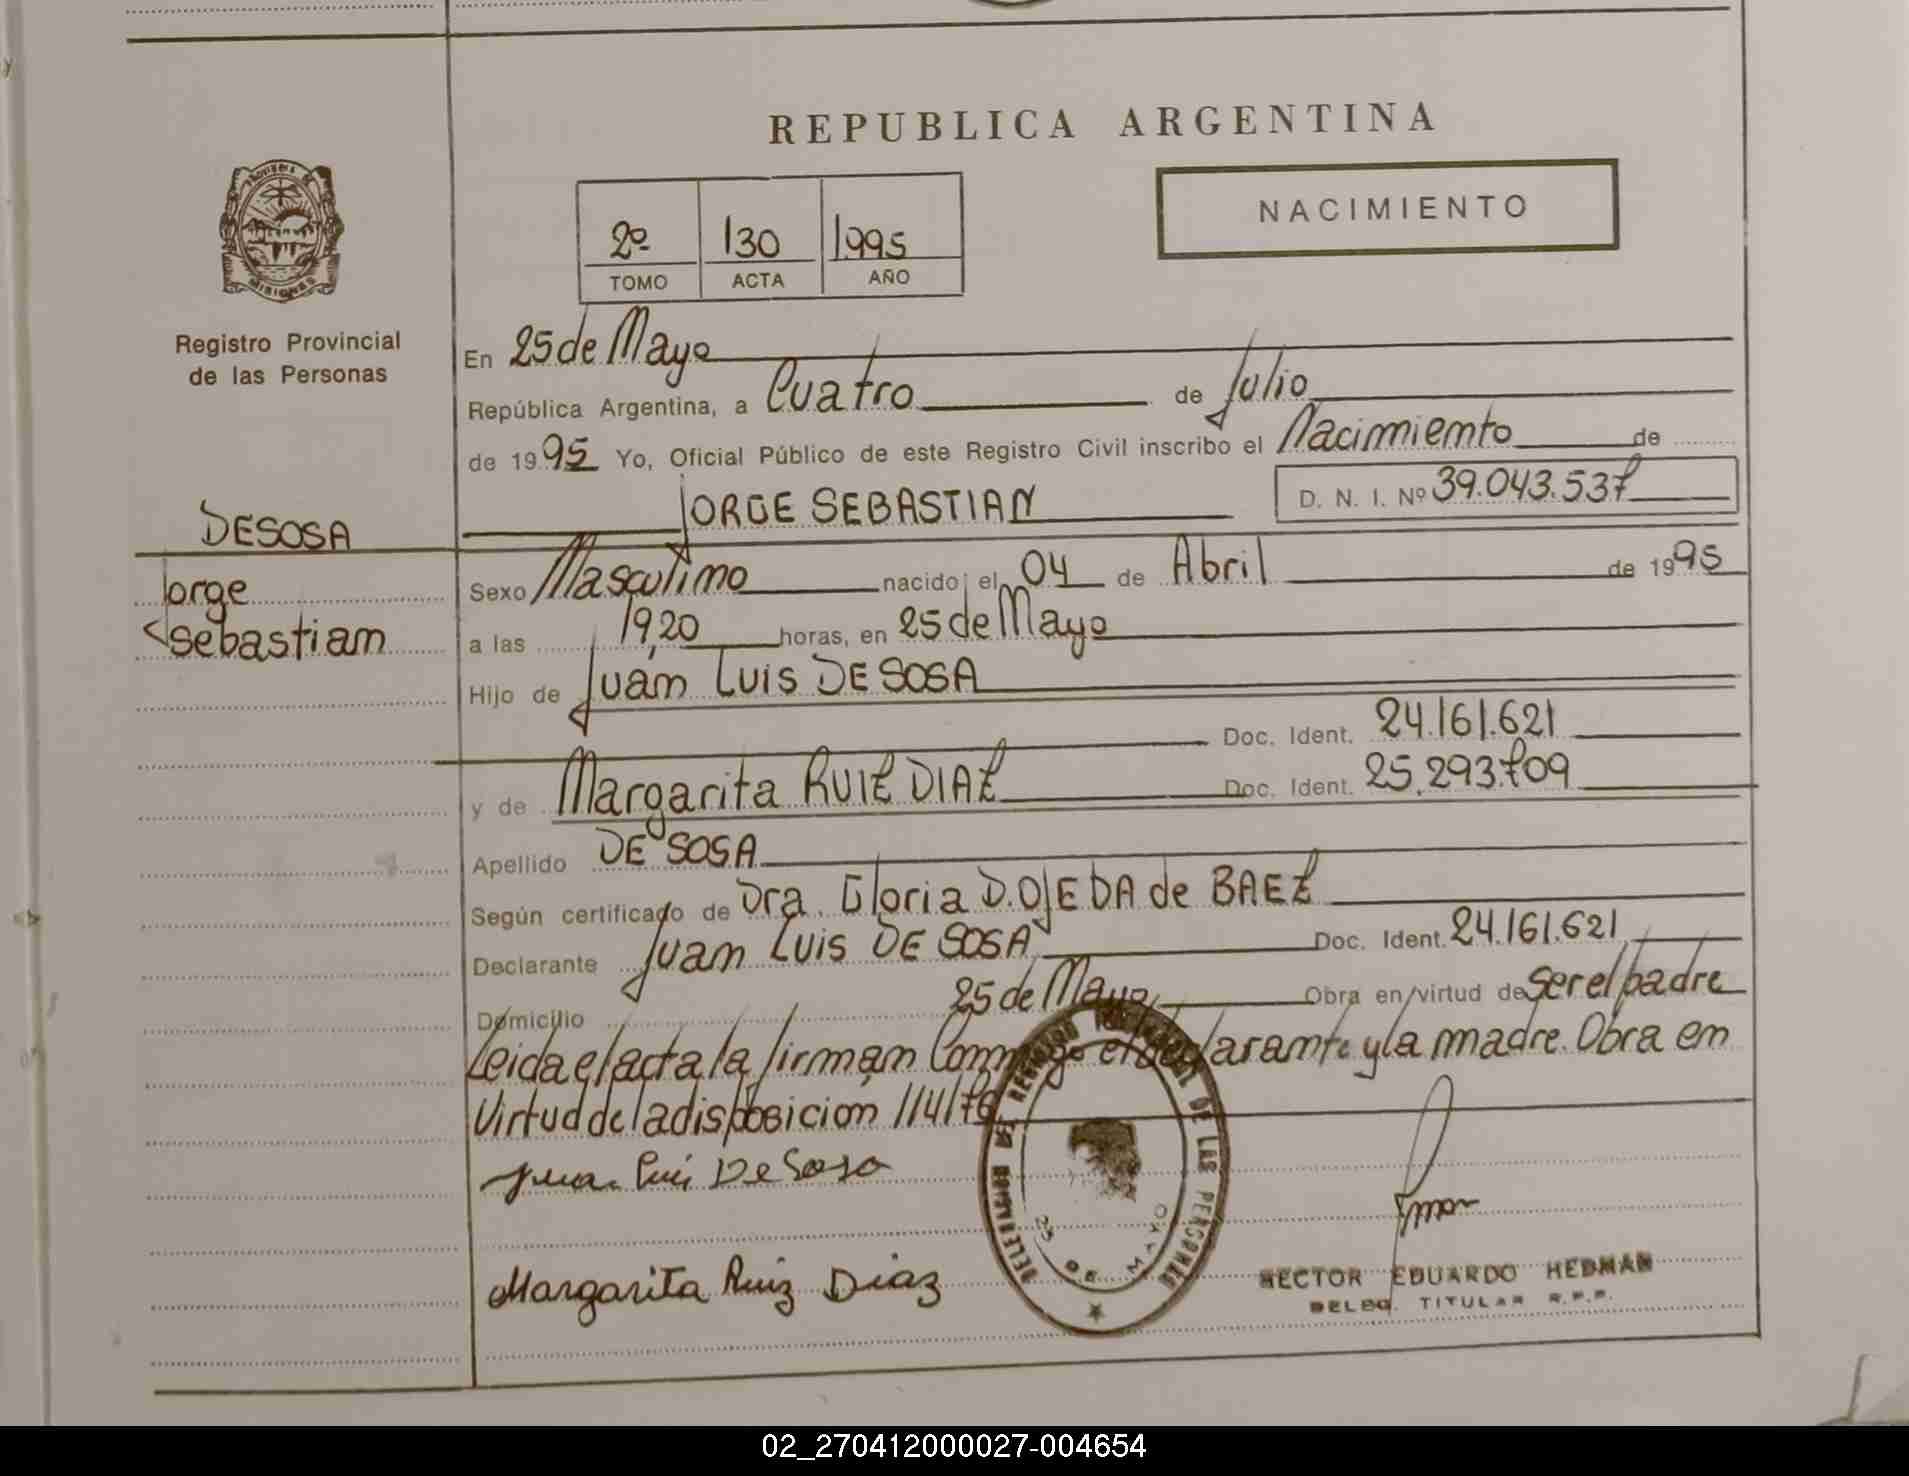 REPUBLICA ARGENTINA
PROVINCIA DE
MISIONES
Registro Provincial
de las Personas
2º 130 1995
TOMO ACTA AÑO
NACIMIENTO
En 25 de Mayo
República Argentina, a Cuatro de Julio
de 1995 Yo, Oficial Público de este Registro Civil inscribo el Nacimiento de
JORGE SEBASTIAN D. N. I. Nº 39.043.537
DESOSA
Jorge
Sebastian
Sexo Masculino nacido el 04 de Abril de 1995
a las 19,20 horas, en 25 de Mayo
Hijo de Juan Luis DE SOSA
Doc. Ident. 24.161.621
y de Margarita RUIZ DIAZ Doc. Ident. 25.293.709
Apellido DE SOSA
Según certificado de Dra. Gloria D. OJEDA de BAEZ
Declarante Juan Luis DE SOSA Doc. Ident. 24.161.621
Domicilio 25 de Mayo Obra en/virtud de Ser el padre
Leida el acta la firman Conmigo el declarante y la madre. Obra en
Virtud de la disposicion 114/76
Juan Luis De Sosa
Margarita Ruiz Diaz
DELEGACION DE REGISTRO PROVINCIAL DE LAS PERSONAS
25 DE MAYO
HECTOR EDUARDO HEDMAN
DELEG. TITULAR R.P.P.
02_270412000027-004654